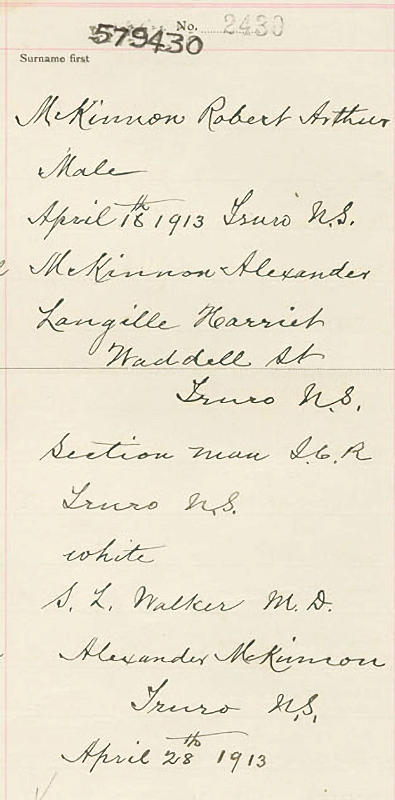 No. 2430
579430
Surname first
McKinnon Robert Arthur
Male
April 18th 1913 Truro N.S.
McKinnon Alexander
Langille Harriet
Waddell St
Truro N.S.
Section man I.C.R
Truro N.S.
white
S. L. Walker M.D.
Alexander McKinnon
Truro N.S.
April 28th 1913